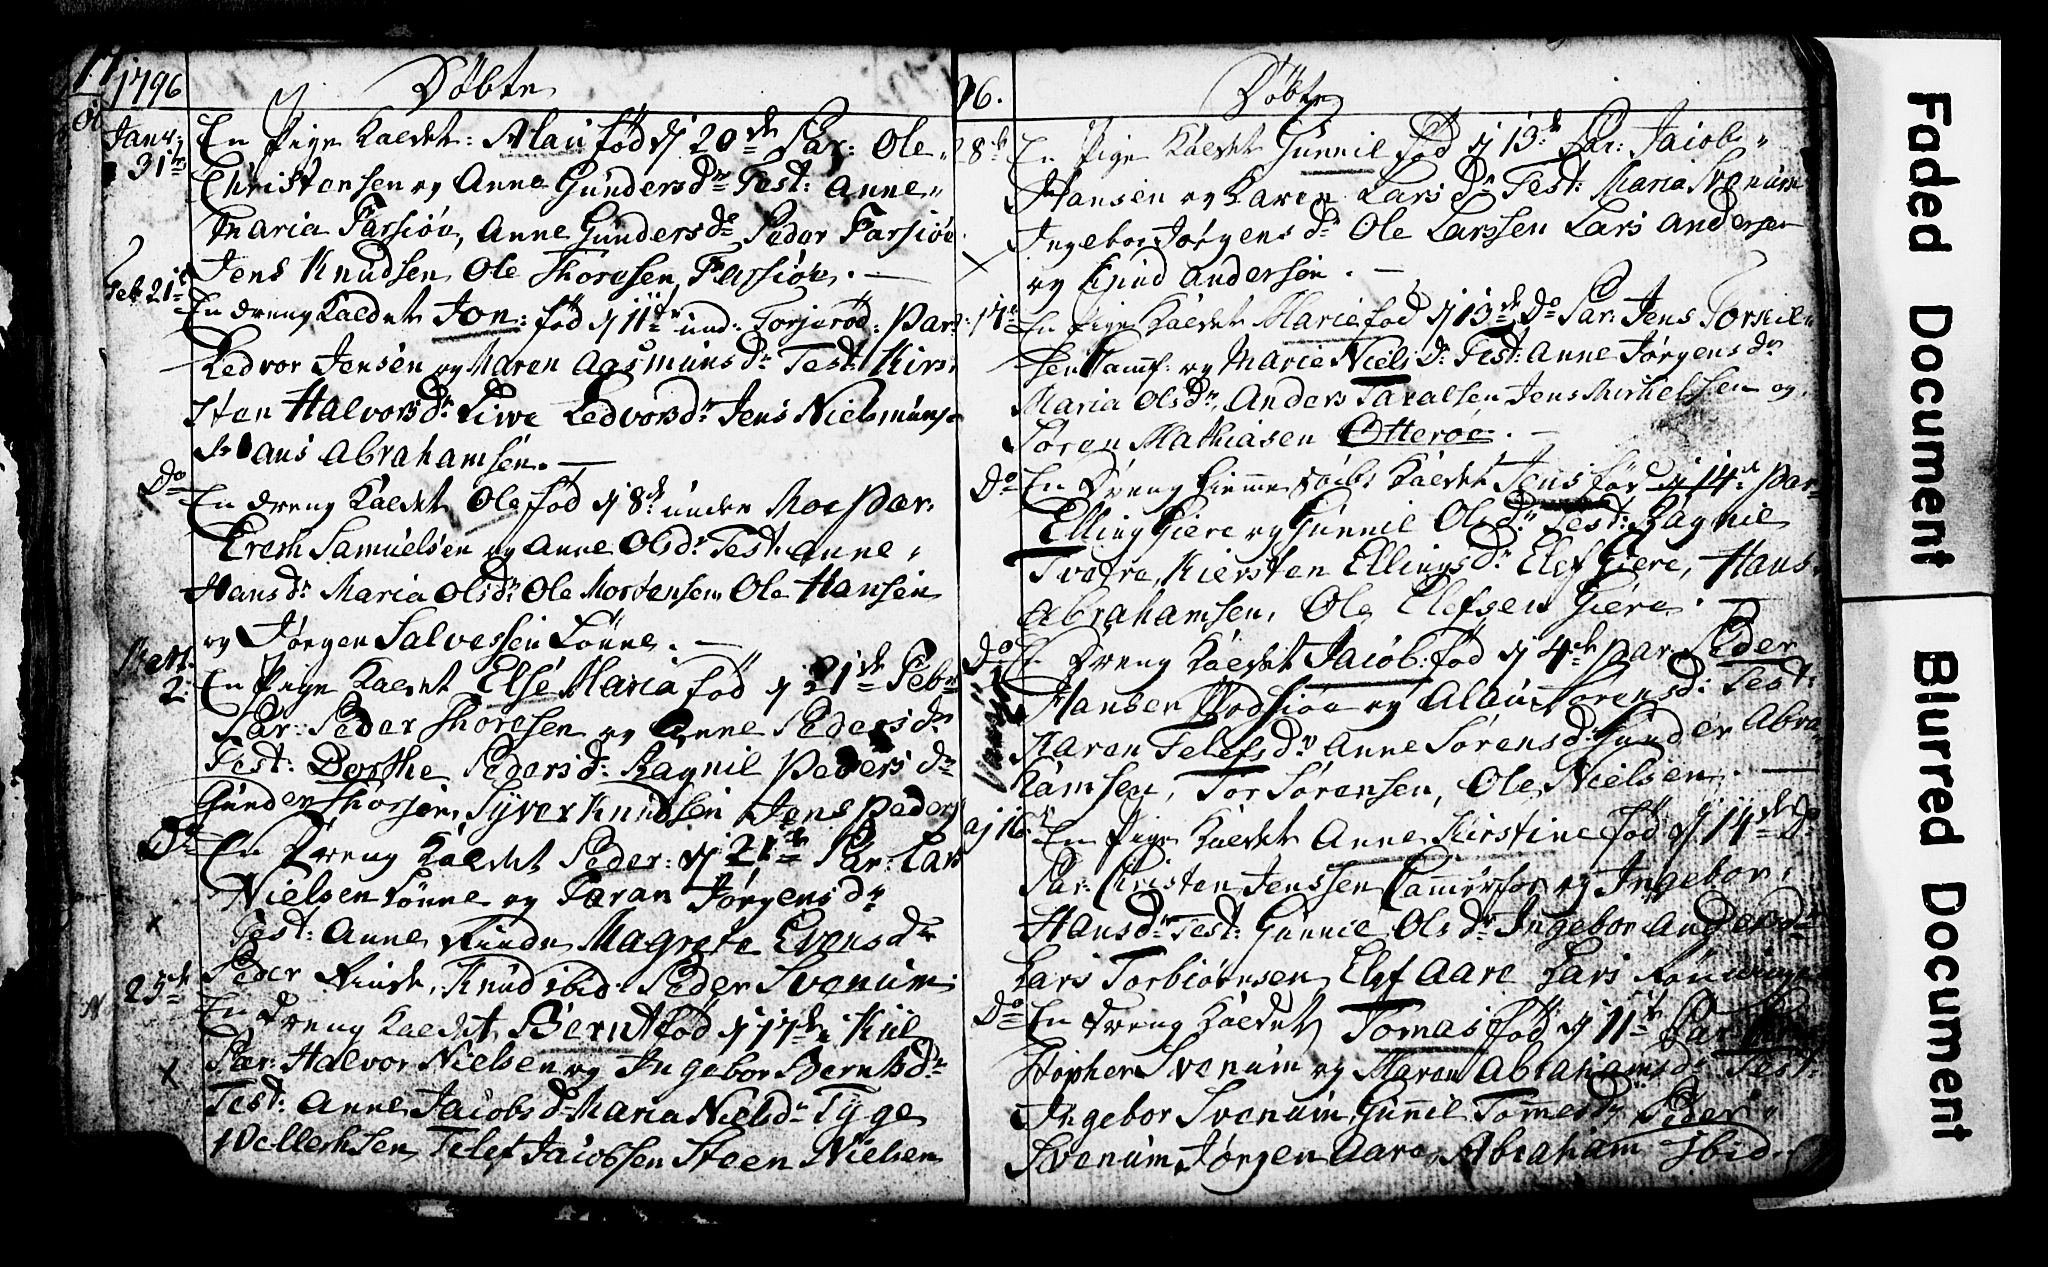 1796 Döbte
Janv: En Pige Kaldet: Alau föd d 20de Par: Ole
31te Christensen og Anne Gundersdr Test: Anne
Maria Farsiöe, Anne Gundersdr Peder Farsiöe
Jens Knudsen Ole Thoresen Farsiöe. —
Feb 21de En dreng Kaldet Jon: föd d 11te und: Torjeröd: Par:
Ledvor Jensen og Maren Aasmunsdr Test: Kirs
sten Halvorsdr Live Ledvorsdr Jens Nielsmuns
Hans Abrahamsen. —
Do En dreng Kaldet Ole föd d 8de under Moe Par:
Erech Samuelsen og Anne Olsdr Test: Anne
Hansdr Maria Olsdr Ole Mortensen Ole Hansen
og Jörgen Salvessen Lönne. —
Mart.
2. En Pige Kaldet Else Maria föd d 21de Febr
Par: Peder Thoresen og Anne Pedersdr
Test: Dorthe Pedersdr Ragnil Pedersdr
Gunder Thorsen, Syver Knudsen Jens Peders
Do En Dreng Kaldet Peder: d 21de Par: Lars
Nielsen Lönne og Taran Jörgensdr
Test: Anne Kinde Magrete Evensdr
Peder Kinde, Knud ibid. Peder Svenum.
25de En dreng Kaldet Bernt föd d 17de Kiil
Par: Halvor Nielsen og Ingebor Berntsdr
Test: Anne Jacobsdr Maria Nielsdr Tyge
Vellechsen Telef Jacobsen Steen Nielsen
96. Döbte
28de En Pige Kaldet Gunnil föd d 13de Par: Jacob
Hansen og Karen Larsdr Test: Maria Svenum
Ingebor Jörgensdr Ole Larssen Lars Andersen
og Knud Andersen. —
17de En Pige Kaldet Marie föd d 13de Do Par: Jens Torkil
sen og Marie Nielsdr Test: Anne Jörgensdr
Maria Olsdr, Anders Taralsen Jens Mickelssen og
Sören Mathiasen Otteroe. —
Do En Dreng hiemme döbt Kaldet Jens föd d 14de Par
Elling Giere og Gunnil Olsdr Test: Ragnil
Tvetre, Kiersten Ellingsdr Elef Giere, Hans
Abrahamsen, Ole Elefsen Giere. —
Do En Dreng Kaldet Jacob: föd d 4de Par Peder
Hansen og Alau Sörensdr Test:
Karen Telefsdr Anne Sörensdr Gunder Abra
hamsen, Tor Sörensen, Ole Nielsen. —
aj 16. En Pige Kaldet Anne Kirstine föd d 14de Do
Par: Kristen Jenssen og Ingebor
Hansdr Test: Gunnil Olsdr Ingebor Andersdr
Lars Torbiörnsen Elef Aare Lars Rönninge
Do En dreng Kaldet Tomas föd d 11te Par:
stopher Svenum og Maren Abrahamsdr Test:
Ingebor Svenum Gunnil Tommesdr Peder
Svenum, Jörgen Aare Abraham Ibid.
Faded Document Blurred Document